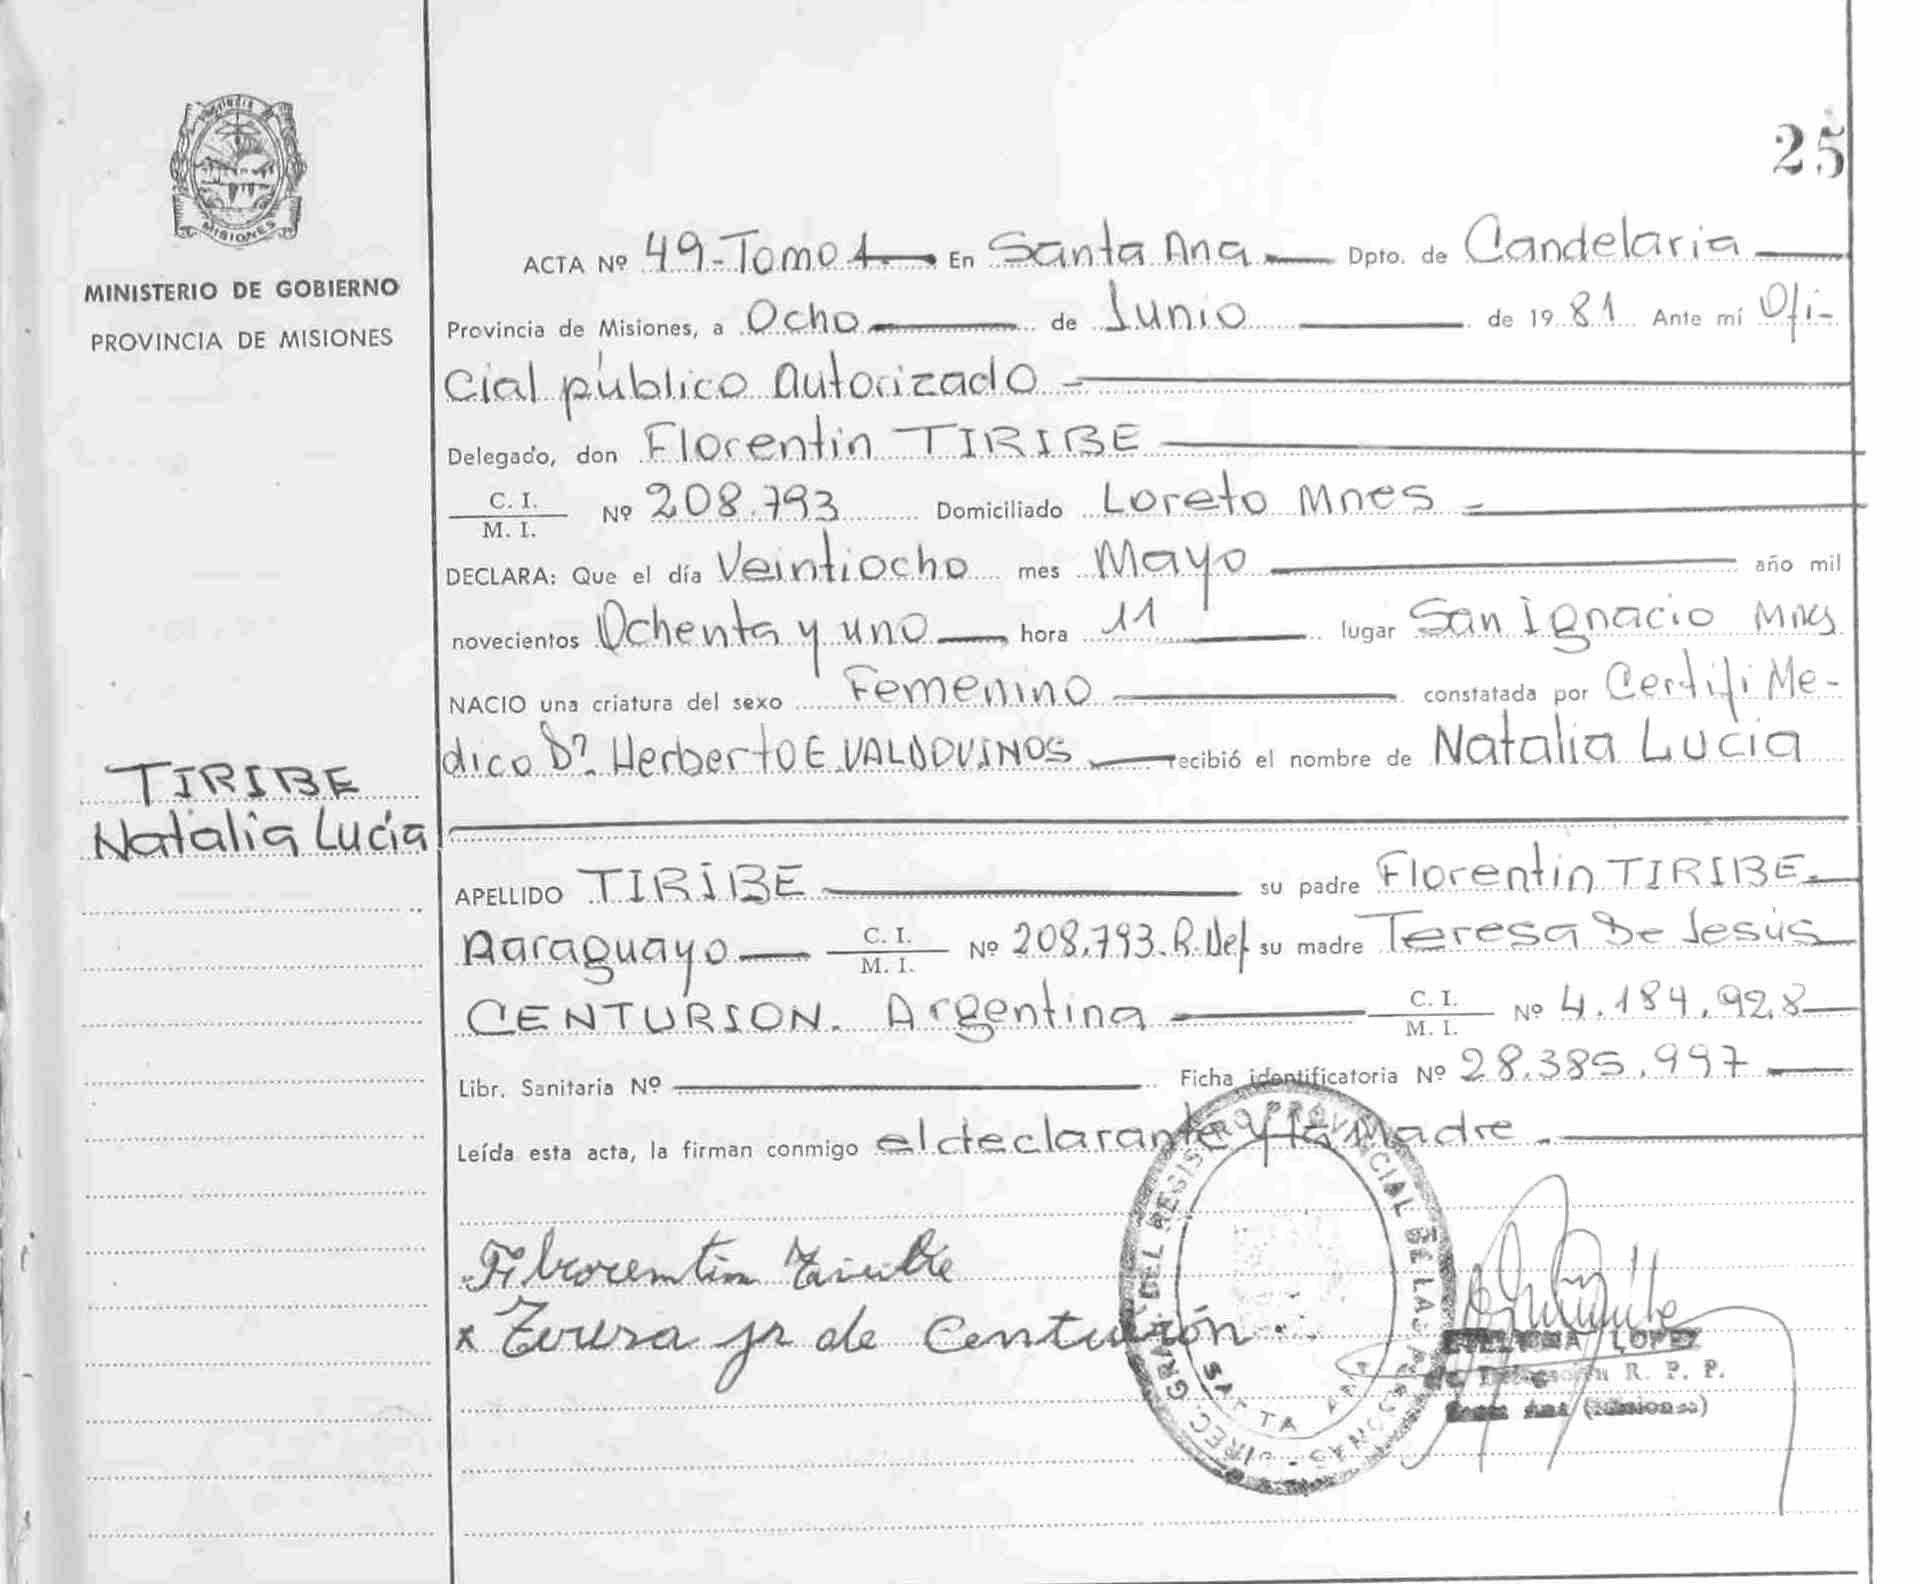 25
MISIONES
MINISTERIO DE GOBIERNO
PROVINCIA DE MISIONES
ACTA Nº 49-Tomo 1 En Santa Ana Dpto. de Candelaria
Provincia de Misiones, a Ocho de Junio de 1981 Ante mí Ofi-
cial público Autorizado
Delegado, don Florentin TIRIBE
C. I.
M. I. Nº 208.793 Domiciliado Loreto Mnes
DECLARA: Que el día Veintiocho mes Mayo año mil
novecientos Ochenta y uno hora 11 lugar San Ignacio Mnes
NACIO una criatura del sexo Femenino constatada por Certifi Me-
dico Dr. Herberto E. VALDOVINOS recibió el nombre de Natalia Lucia
TIRIBE
Natalia Lucia
APELLIDO TIRIBE su padre Florentin TIRIBE.
Paraguayo C. I. M. I. Nº 208.793.R.Def su madre Teresa De Jesús
CENTURION. Argentina C. I. M. I. Nº 4.184.928
Libr. Sanitaria Nº Ficha identificatoria Nº 28.385.997
Leída esta acta, la firman conmigo el declarante y la Madre.
x Teresa de Centurión
DIREC. GRAL. DEL REGISTRO PROVINCIAL DE LAS PERSONAS
SANTA ANA
LOPEZ
R. P. P.
Santa Ana (Misiones)